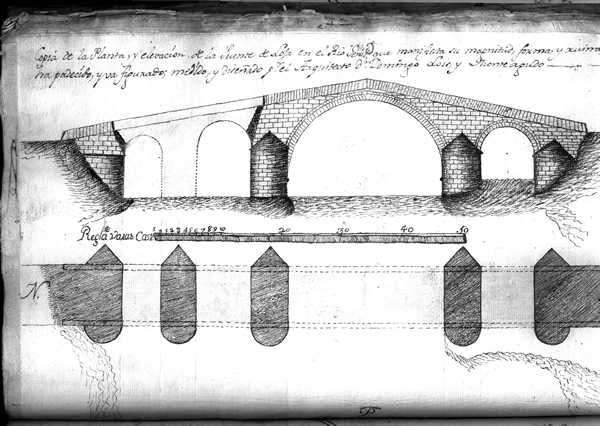 Copia de la Planta, y elevacion de la Puente de Loja en el Rio que manifiesta su magnitud, forma, y ruina
ha padecido, y va figurado, medido, y diseñado Pr el Arquitecto Dn Domingo Lois y Monteagudo
Regla Varas Cast
1 2 3 4 5 6 7 8 9 10 20 30 40 50
N.